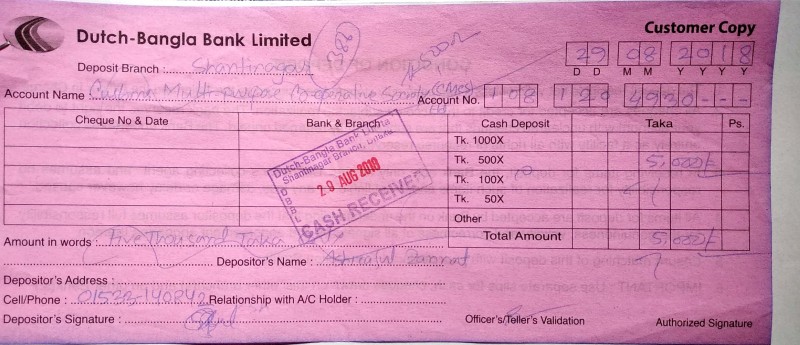 Customer Copy
Dutch-Bangla Bank Limited
29 08 2018
D D M M Y Y Y Y
Deposit Branch : Shantinagar
Account Name : Customs Multi-purpose Co-operative Society Account No. 108 120 4930---
Cheque No & Date Bank & Branch Cash Deposit Taka Ps.
Tk. 1000X
Tk. 500X 5,000/-
Tk. 100X
Tk. 50X
Other
Total Amount 5,000/-
Dutch-Bangla Bank Limited
Shantinagar Branch, Dhaka.
29 AUG 2018
CASH RECEIVED
Amount in words : Five Thousand Taka
Depositor's Name :
Depositor's Address :
Cell/Phone : Relationship with A/C Holder :
Depositor's Signature :
Officer's/Teller's Validation Authorized Signature